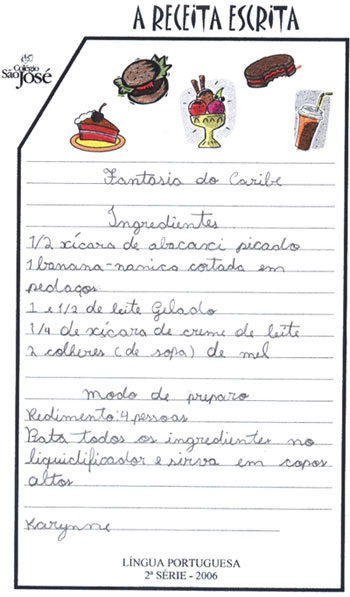 A RECEITA ESCRITA
Colégio
São José
Fantasia do Caribe
Ingredientes
1/2 xícara de abacaxi picado
1 banana-nanica cortada em
pedaços
1 e 1/2 de leite Gelado
1/4 de xícara de creme de leite
2 colheres (de sopa) de mel
Modo de preparo
Redimento: 4 pessoas
Bata todos os ingredientes no
liquidificador e sirva em copos
altos
Karynne
LÍNGUA PORTUGUESA
2ª SÉRIE - 2006